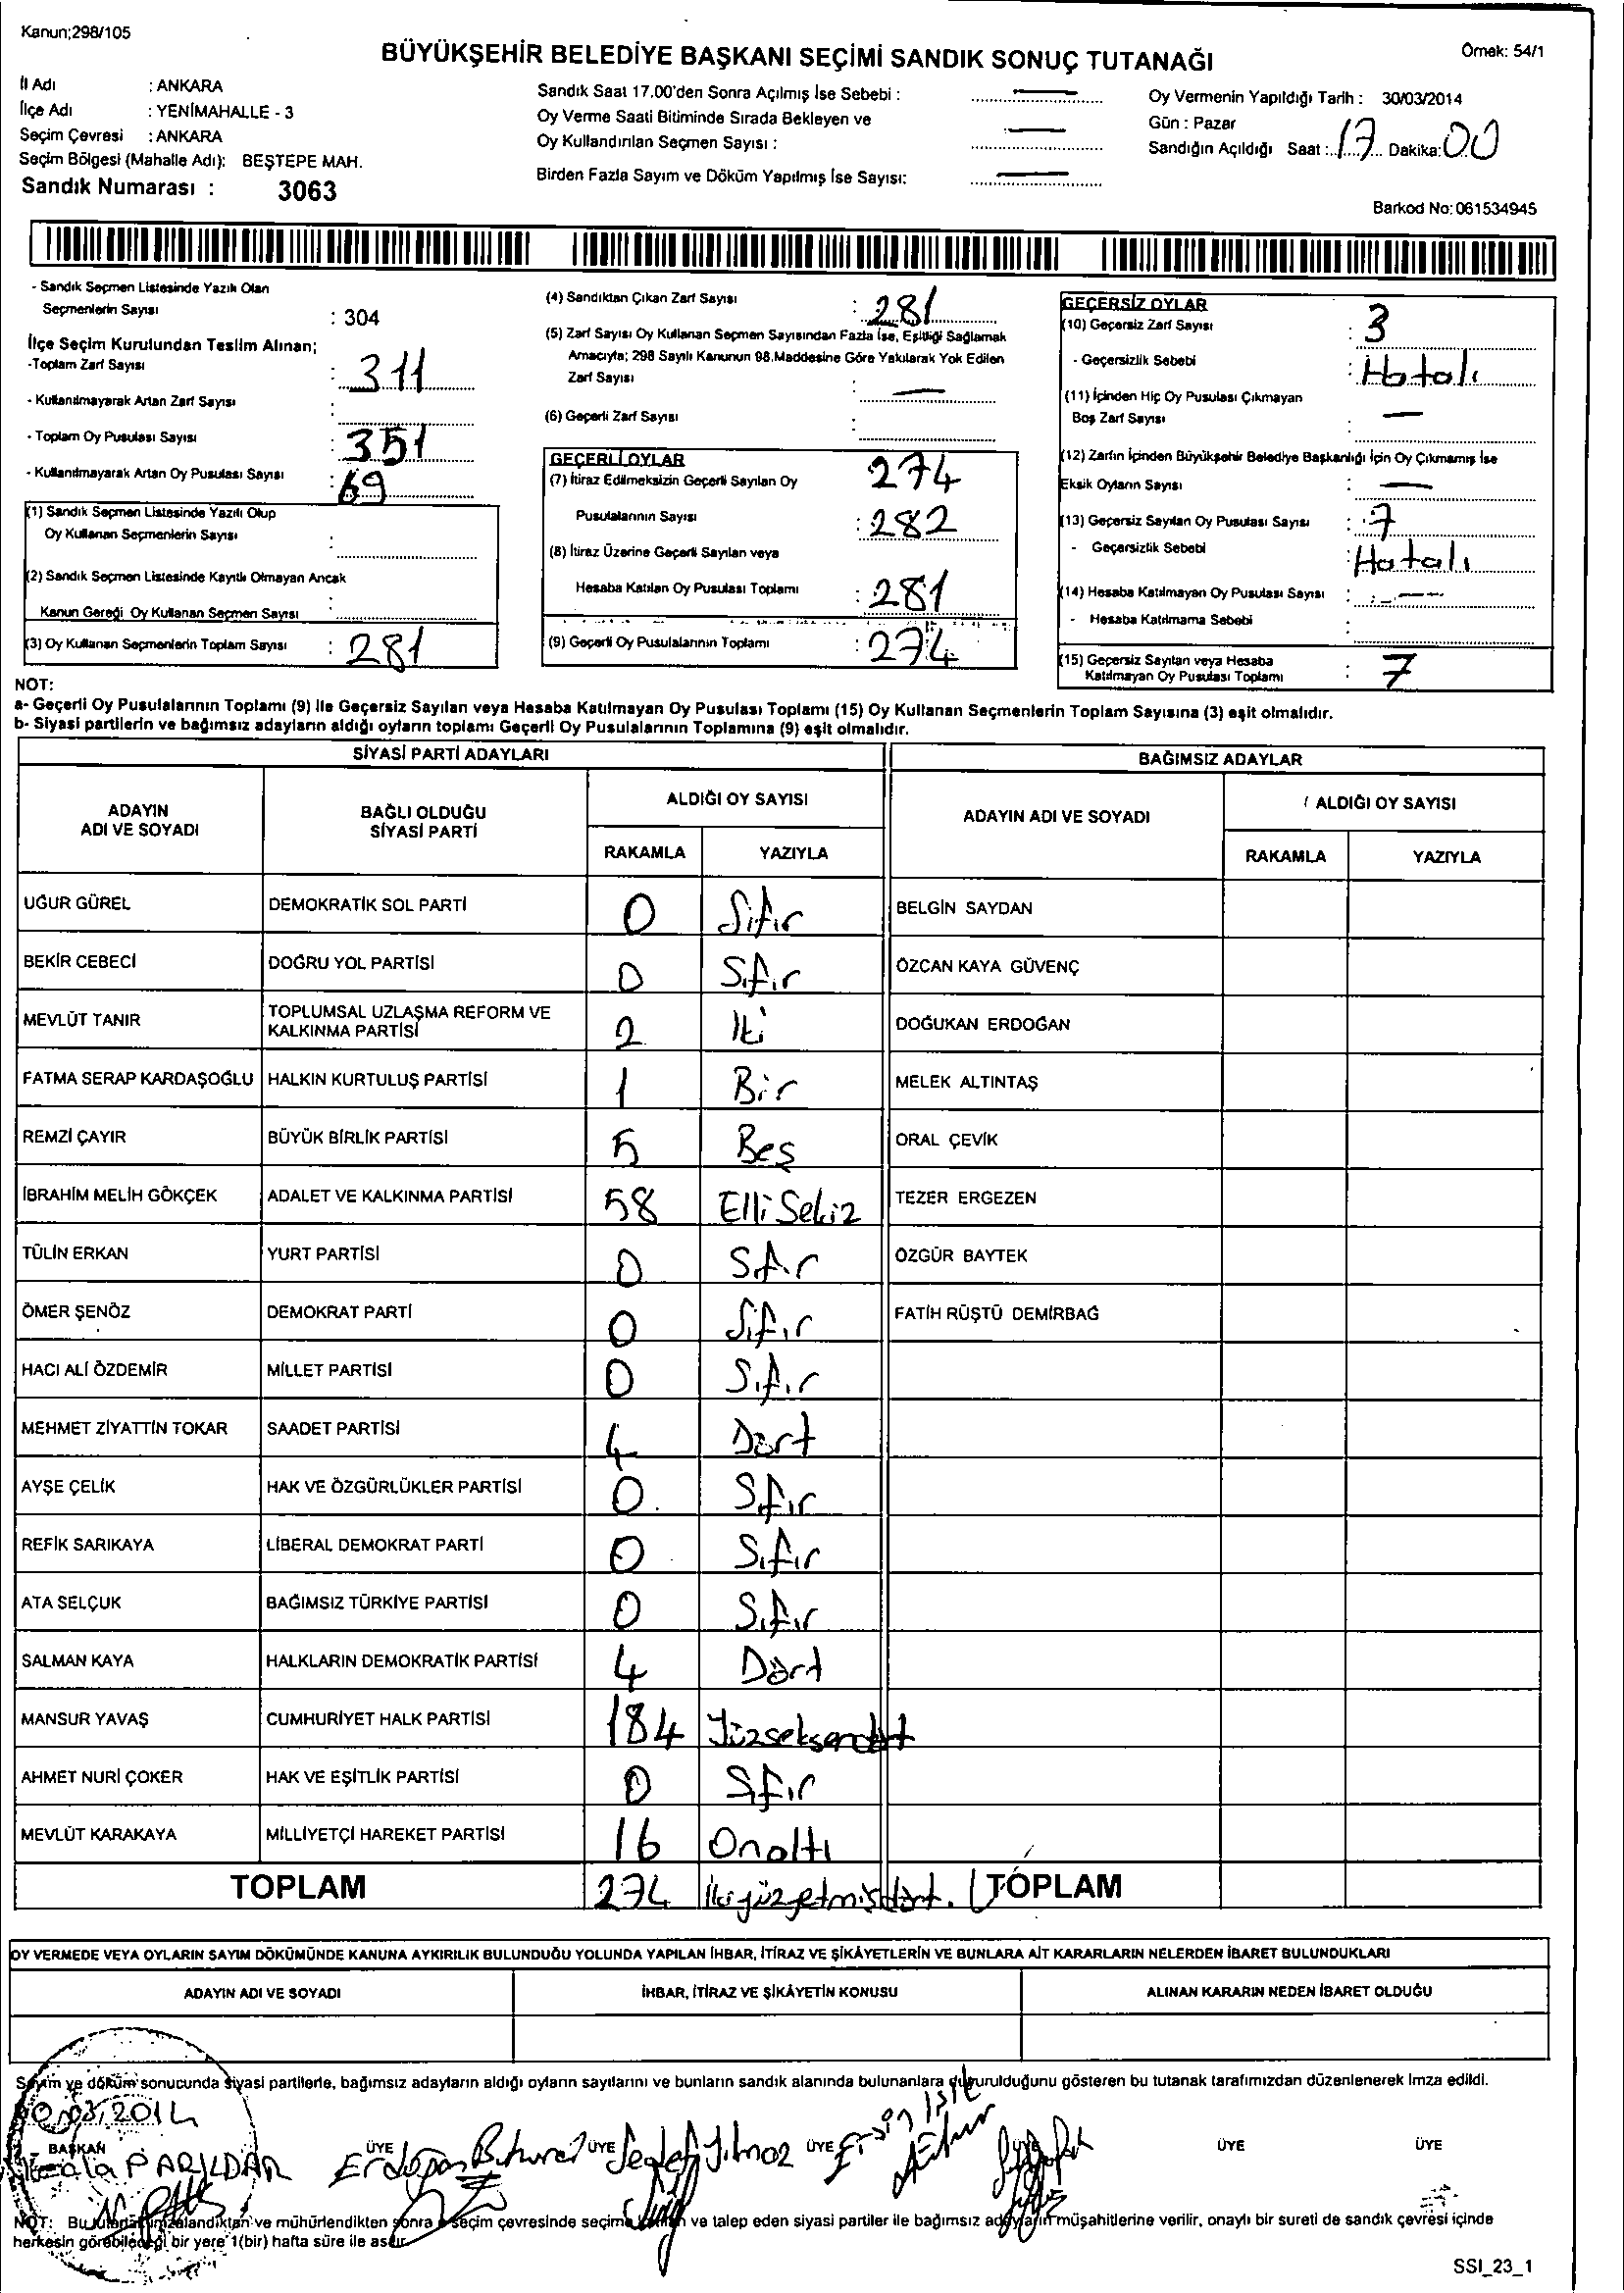 Kanun;298/105
BÜYÜKŞEHİR BELEDİYE BAŞKANI SEÇİMİ SANDIK SONUÇ TUTANAĞI
Örnek: 54/1
İl Adı : ANKARA
İlçe Adı : YENİMAHALLE - 3
Seçim Çevresi : ANKARA
Seçim Bölgesi (Mahalle Adı): BEŞTEPE MAH.
Sandık Numarası : 3063
Sandık Saat 17.00'den Sonra Açılmış İse Sebebi : —
Oy Verme Saati Bitiminde Sırada Bekleyen ve
Oy Kullandırılan Seçmen Sayısı : —
Birden Fazla Sayım ve Döküm Yapılmış İse Sayısı: —
Oy Vermenin Yapıldığı Tarih : 30/03/2014
Gün : Pazar
Sandığın Açıldığı Saat : 17 Dakika: 00
Barkod No: 061534945
- Sandık Seçmen Listesinde Yazılı Olan
Seçmenlerin Sayısı : 304
İlçe Seçim Kurulundan Teslim Alınan;
-Toplam Zarf Sayısı : 311
- Kullanılmayarak Artan Zarf Sayısı :
- Toplam Oy Pusulası Sayısı : 351
- Kullanılmayarak Artan Oy Pusulası Sayısı : 69
(1) Sandık Seçmen Listesinde Yazılı Olup
Oy Kullanan Seçmenlerin Sayısı :
(2) Sandık Seçmen Listesinde Kayıtlı Olmayan Ancak
Kanun Gereği Oy Kullanan Seçmen Sayısı :
(3) Oy Kullanan Seçmenlerin Toplam Sayısı : 281
(4) Sandıktan Çıkan Zarf Sayısı : 281
(5) Zarf Sayısı Oy Kullanan Seçmen Sayısından Fazla İse, Eşitliği Sağlamak
Amacıyla; 298 Sayılı Kanunun 98.Maddesine Göre Yakılarak Yok Edilen
Zarf Sayısı : —
(6) Geçerli Zarf Sayısı :
GEÇERLİ OYLAR
(7) İtiraz Edilmeksizin Geçerli Sayılan Oy 274
Pusulalarının Sayısı : 282
(8) İtiraz Üzerine Geçerli Sayılan veya
Hesaba Katılan Oy Pusulası Toplamı : 281
(9) Geçerli Oy Pusulalarının Toplamı : 274
GEÇERSİZ OYLAR
(10) Geçersiz Zarf Sayısı : 3
- Geçersizlik Sebebi : Hatalı
(11) İçinden Hiç Oy Pusulası Çıkmayan
Boş Zarf Sayısı : —
(12) Zarfın İçinden Büyükşehir Belediye Başkanlığı İçin Oy Çıkmamış İse
Eksik Oyların Sayısı : —
(13) Geçersiz Sayılan Oy Pusulası Sayısı : 7
- Geçersizlik Sebebi : Hatalı
(14) Hesaba Katılmayan Oy Pusulası Sayısı : —
- Hesaba Katılmama Sebebi :
(15) Geçersiz Sayılan veya Hesaba
Katılmayan Oy Pusulası Toplamı : 7
NOT:
a- Geçerli Oy Pusulalarının Toplamı (9) ile Geçersiz Sayılan veya Hesaba Katılmayan Oy Pusulası Toplamı (15) Oy Kullanan Seçmenlerin Toplam Sayısına (3) eşit olmalıdır.
b- Siyasi partilerin ve bağımsız adayların aldığı oyların toplamı Geçerli Oy Pusulalarının Toplamına (9) eşit olmalıdır.
SİYASİ PARTİ ADAYLARI
BAĞIMSIZ ADAYLAR
ADAYIN
ADI VE SOYADI
BAĞLI OLDUĞU
SİYASİ PARTİ
ALDIĞI OY SAYISI
RAKAMLA YAZIYLA
ADAYIN ADI VE SOYADI
ALDIĞI OY SAYISI
RAKAMLA YAZIYLA
UĞUR GÜREL DEMOKRATİK SOL PARTİ 0 Sıfır BELGİN SAYDAN
BEKİR CEBECİ DOĞRU YOL PARTİSİ 0 Sıfır ÖZCAN KAYA GÜVENÇ
MEVLÜT TANIR TOPLUMSAL UZLAŞMA REFORM VE
KALKINMA PARTİSİ 2 İki DOĞUKAN ERDOĞAN
FATMA SERAP KARDAŞOĞLU HALKIN KURTULUŞ PARTİSİ 1 Bir MELEK ALTINTAŞ
REMZİ ÇAYIR BÜYÜK BİRLİK PARTİSİ 5 Beş ORAL ÇEVİK
İBRAHİM MELİH GÖKÇEK ADALET VE KALKINMA PARTİSİ 58 Elli Sekiz TEZER ERGEZEN
TÜLİN ERKAN YURT PARTİSİ 0 Sıfır ÖZGÜR BAYTEK
ÖMER ŞENÖZ DEMOKRAT PARTİ 0 Sıfır FATİH RÜŞTÜ DEMİRBAĞ
HACI ALİ ÖZDEMİR MİLLET PARTİSİ 0 Sıfır
MEHMET ZİYATTİN TOKAR SAADET PARTİSİ 4 Dört
AYŞE ÇELİK HAK VE ÖZGÜRLÜKLER PARTİSİ 0 Sıfır
REFİK SARIKAYA LİBERAL DEMOKRAT PARTİ 0 Sıfır
ATA SELÇUK BAĞIMSIZ TÜRKİYE PARTİSİ 0 Sıfır
SALMAN KAYA HALKLARIN DEMOKRATİK PARTİSİ 4 Dört
MANSUR YAVAŞ CUMHURİYET HALK PARTİSİ 184 Yüzseksendört
AHMET NURİ ÇOKER HAK VE EŞİTLİK PARTİSİ 0 Sıfır
MEVLÜT KARAKAYA MİLLİYETÇİ HAREKET PARTİSİ 16 Onaltı
TOPLAM 274 İkiyüzyetmişdört. TOPLAM
OY VERMEDE VEYA OYLARIN SAYIM DÖKÜMÜNDE KANUNA AYKIRILIK BULUNDUĞU YOLUNDA YAPILAN İHBAR, İTİRAZ VE ŞİKÂYETLERİN VE BUNLARA AİT KARARLARIN NELERDEN İBARET BULUNDUKLARI
ADAYIN ADI VE SOYADI İHBAR, İTİRAZ VE ŞİKÂYETİN KONUSU ALINAN KARARIN NEDEN İBARET OLDUĞU
Sayım ve döküm sonucunda siyasi partilerle, bağımsız adayların aldığı oyların sayılarını ve bunların sandık alanında bulunanlara duyurulduğunu gösteren bu tutanak tarafımızdan düzenlenerek imza edildi.
30/03/2014
BAŞKAN ÜYE ÜYE ÜYE ÜYE ÜYE
PARILDAR Erdoğan Yılmaz Ersin
NOT: Bu tutanak imzalandıktan ve mühürlendikten sonra o seçim çevresinde seçime katılan ve talep eden siyasi partiler ile bağımsız adayların müşahitlerine verilir, onaylı bir sureti de sandık çevresi içinde
herkesin görebileceği bir yere 1(bir) hafta süre ile asılır.
SSI_23_1